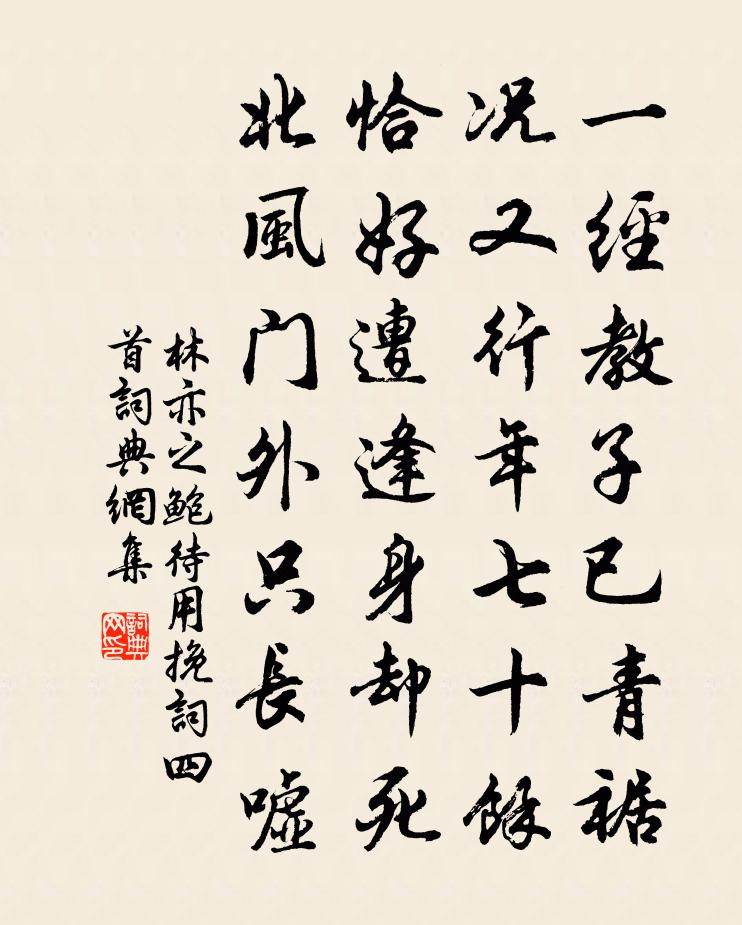 一經教子已青裾
况又行年七十餘
恰好遭逢身却死
北風门外只長嘘
林亦之鲍待用挽詞四
首詞典網集
詞典
网印